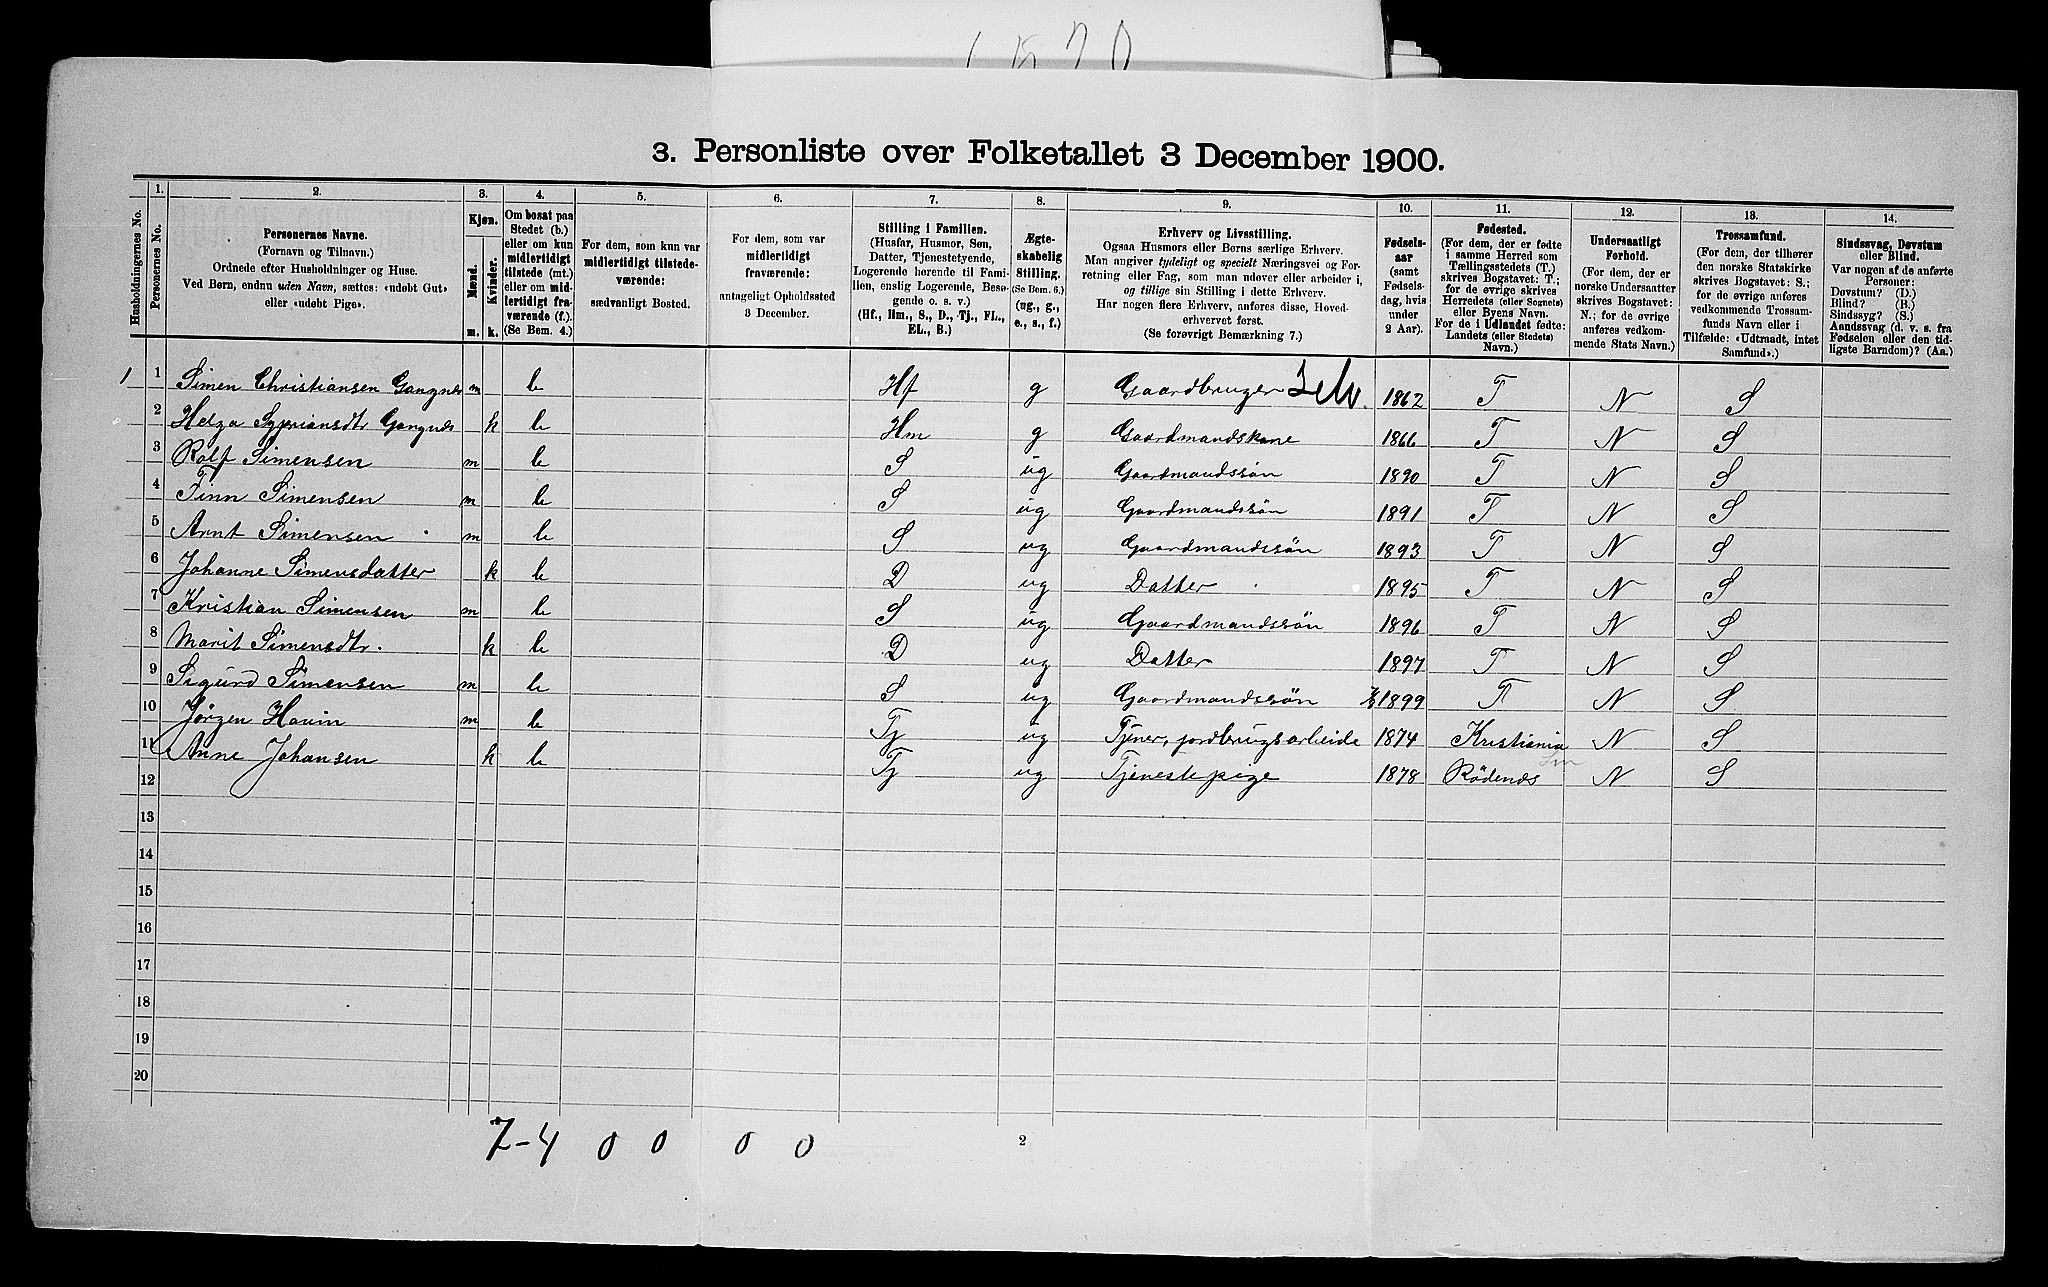 3. Personliste over Folketallet 3 December 1900.
Husholdningernes No.
1. Personernes No.
2. Personernes Navne.
(Fornavn og Tilnavn.)
Ordnede efter Husholdninger og Huse.
Ved Børn, endnu uden Navn, sættes: «udøbt Gut»
eller «udøbt Pige».
3. Kjøn.
Mænd. m.
Kvinder. k.
4. Om bosat paa
Stedet (b.)
eller om kun
midlertidigt
tilstede (mt.)
eller om mid-
lertidigt fra-
værende (f.).
(Se Bem. 4.)
5. For dem, som kun var
midlertidigt tilstede-
værende:
sædvanligt Bosted.
6. For dem, som var
midlertidigt
fraværende:
antageligt Opholdssted
3 December.
7. Stilling i Familien.
(Husfar, Husmor, Søn,
Datter, Tjenestetyende,
Logerende hørende til Fami-
lien, enslig Logerende, Besø-
gende o. s. v.)
(Hf., Hm., S., D., Tj., FL.,
EL., B.)
8. Ægte-
skabelig
Stilling.
(Se Bem. 6.)
(ug., g.,
e., s., f.)
9. Erhverv og Livsstilling.
Ogsaa Husmors eller Børns særlige Erhverv.
Man angiver tydeligt og specielt Næringsvei og For-
retning eller Fag, som man udøver eller arbeider i,
og tillige sin Stilling i dette Erhverv.
Har nogen flere Erhverv, anføres disse, Hoved-
erhvervet først.
(Se forøvrigt Bemærkning 7.)
10. Fødsels-
aar
(samt
Fødsels-
dag, hvis
under
2 Aar).
11. Fødested.
(For dem, der er fødte
i samme Herred som
Tællingsstedets (T.)
skrives Bogstavet: T.;
for de øvrige skrives
Herredets (eller Sognets)
eller Byens Navn.
For de i Udlandet fødte:
Landets (eller Stedets)
Navn.)
12. Undersaatligt
Forhold.
(For dem, der er
norske Undersaatter
skrives Bogstavet:
N.; for de øvrige
anføres vedkom-
mende Stats Navn.)
13. Trossamfund.
(For dem, der tilhører
den norske Statskirke
skrives Bogstavet: S.;
for de øvrige anføres
vedkommende Trossam-
funds Navn eller i
Tilfælde: «Udtraadt, intet
Samfund».)
14. Sindssvag, Døvstum
eller Blind.
Var nogen af de anførte
Personer:
Døvstum? (D.)
Blind? (B.)
Sindssyg? (S.)
Aandssvag (d. v. s. fra
Fødselen eller den tid-
ligste Barndom)? (Aa.)
1 1 Simen Christiansen Gangnes m b Hf g Gaardbruger Selv. 1862 T N S
2 Helga Syprriansdtr Gangnes k b Hm g Gaardmandskone 1866 T N S
3 Rolf Simensen m b S ug Gaardmandssøn 1890 T N S
4 Finn Simensen m b S ug Gaardmandssøn 1891 T N S
5 Arnt Simensen m b S ug Gaardmandssøn 1893 T N S
6 Johanne Simensdatter k b D ug Datter 1895 T N S
7 Kristian Simensen m b S ug Gaardmandssøn 1896 T N S
8 Marit Simensdtr. k b D ug Datter 1897 T N S
9 Sigurd Simensen m b S ug Gaardmandssøn 1899 T N S
10 Jørgen Hauin m b Tj ug Tjener, jordbrugsarbeide 1874 Kristiania N S
11 Anne Johansen k b Tj ug Tjenestepige 1878 Rødenes N S
12
13
14
15
16
17
18
19
20
7-4 0 0 0 0
2